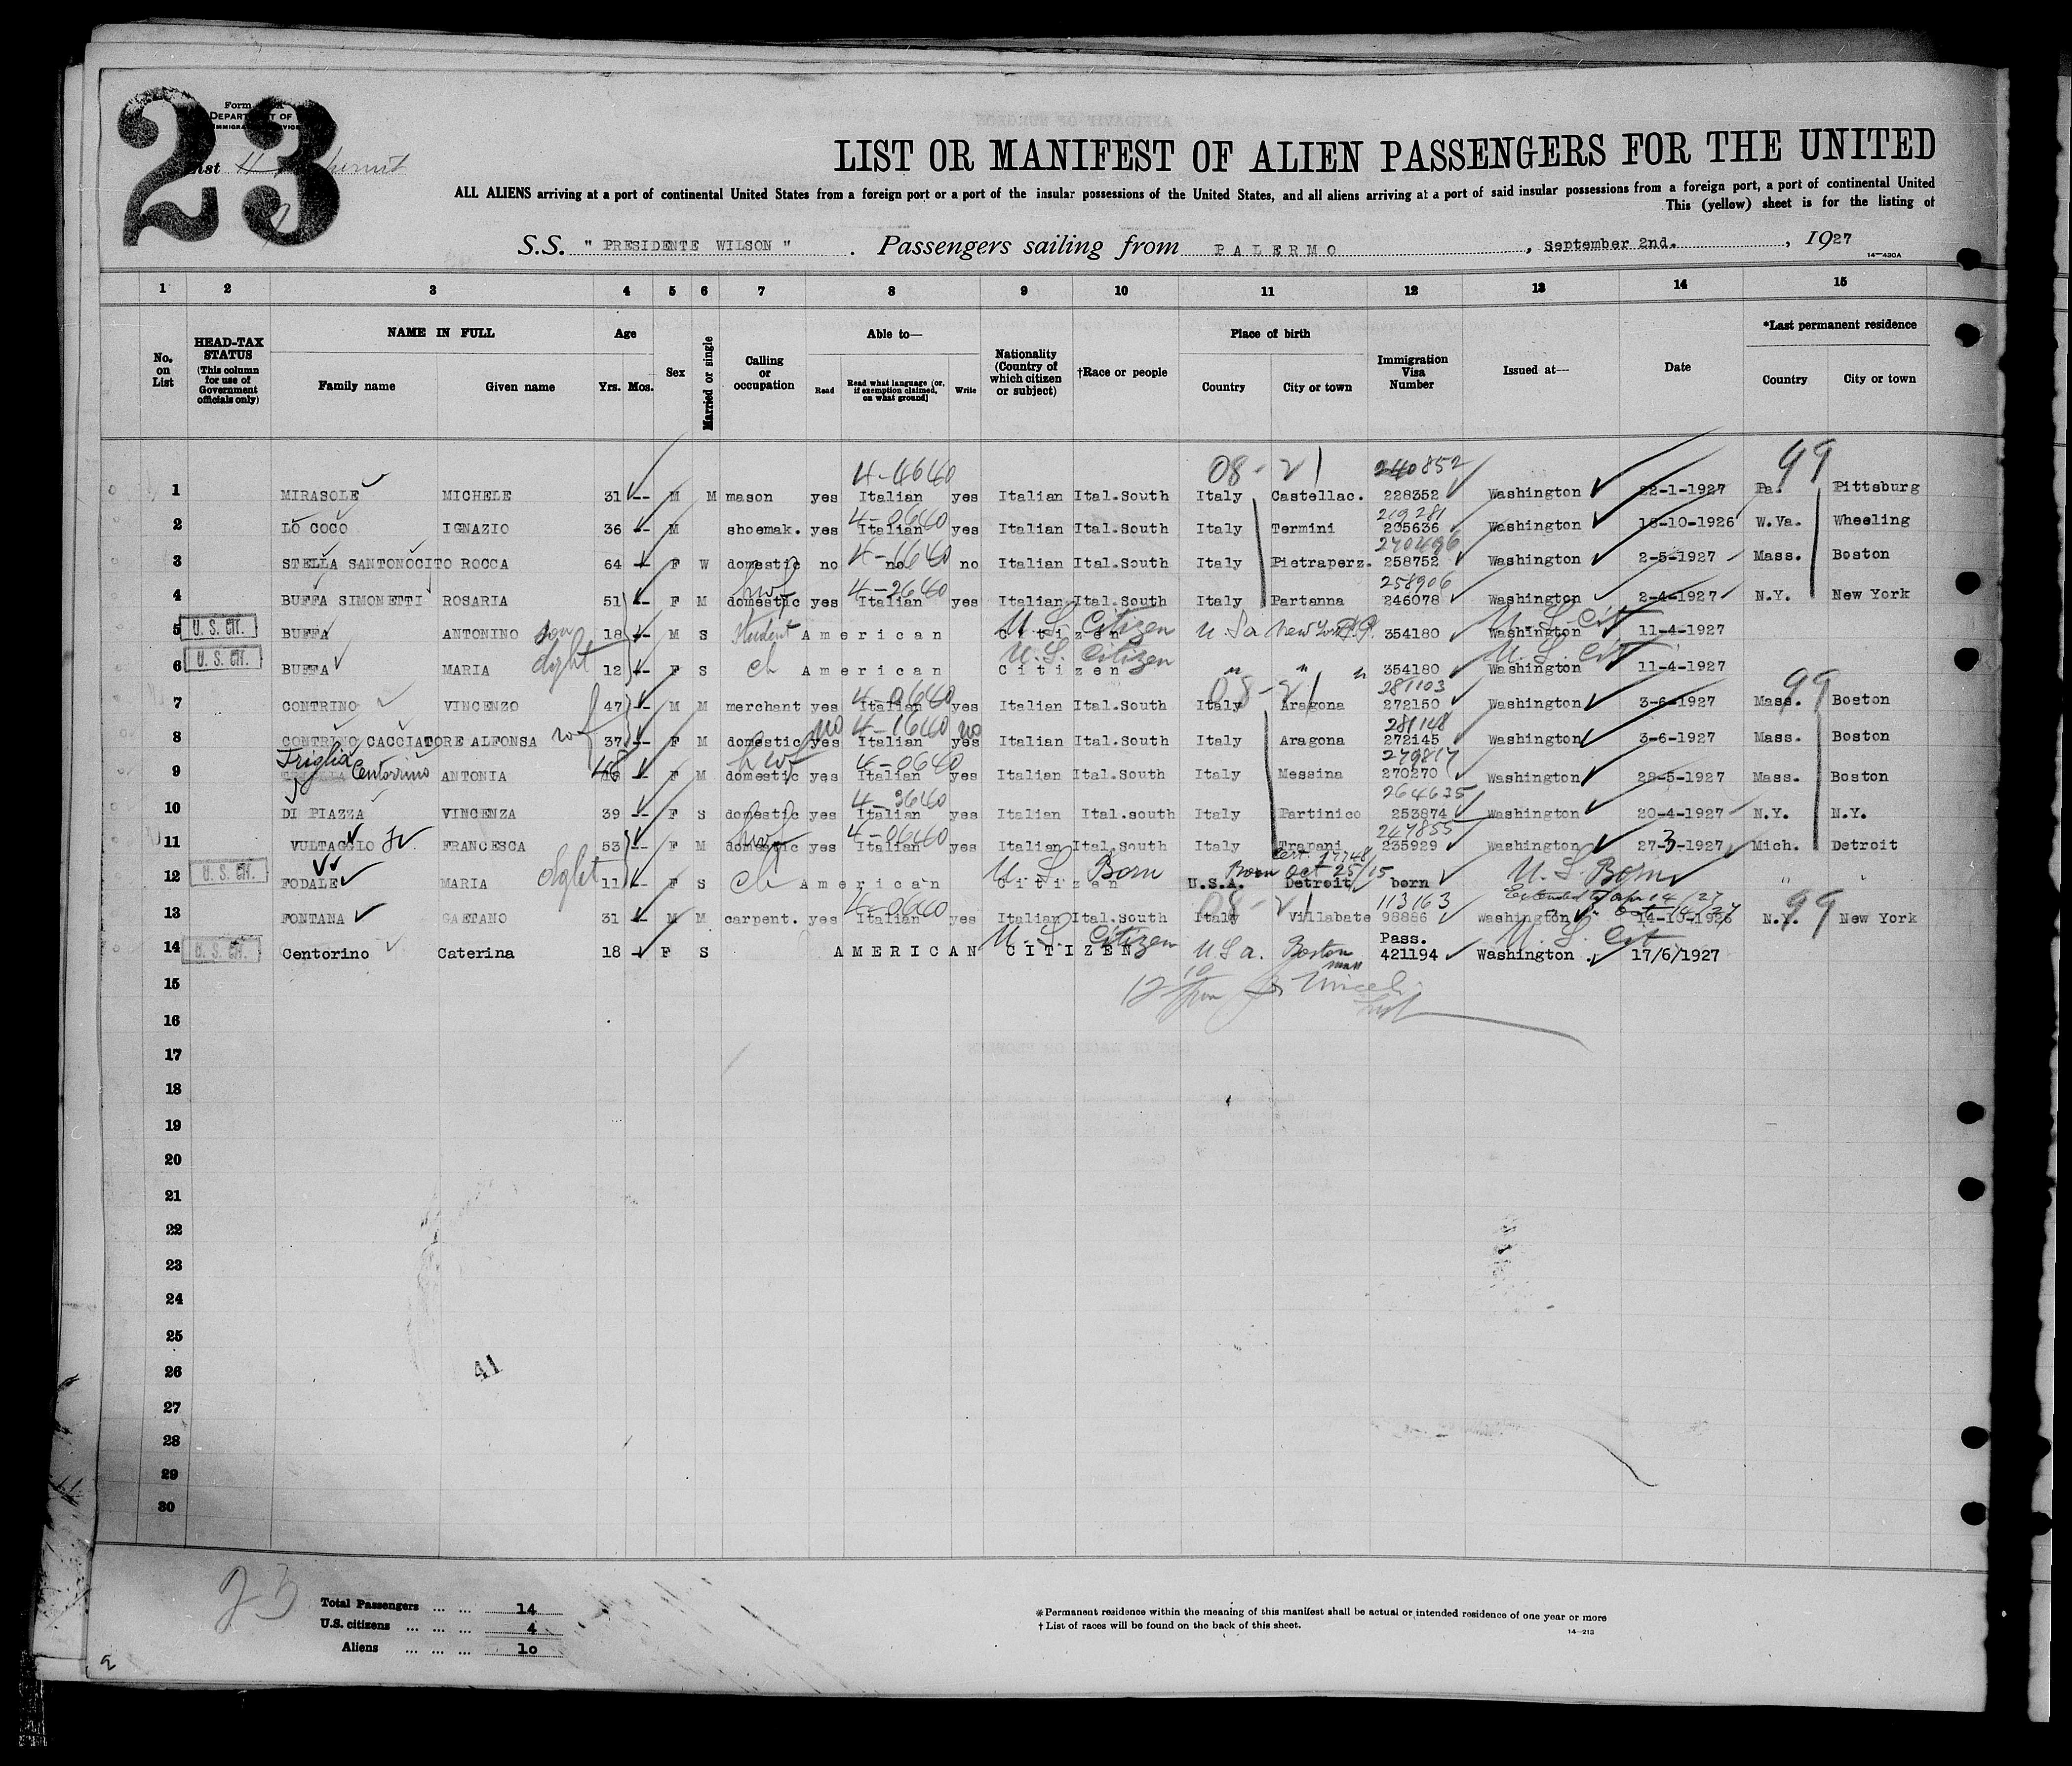 23
Form
DEPARTMENT OF
IMMIGRATION SERVICE
List
LIST OR MANIFEST OF ALIEN PASSENGERS FOR THE UNITED
ALL ALIENS arriving at a port of continental United States from a foreign port or a port of the insular possessions of the United States, and all aliens arriving at a port of said insular possessions from a foreign port, a port of continental United
This (yellow) sheet is for the listing of
S.S. " PRESIDENTE WILSON " . Passengers sailing from PALERMO , September 2nd. , 1927
14—430A
1 2 3 4 5 6 7 8 9 10 11 12 13 14 15
No. on List
HEAD-TAX STATUS (This column for use of Government officials only)
NAME IN FULL
Family name Given name
Age
Yrs. Mos.
Sex
Married or single
Calling or occupation
Able to—
Read Read what language [or, if exemption claimed, on what ground] Write
Nationality (Country of which citizen or subject)
†Race or people
Place of birth
Country City or town
Immigration Visa Number
Issued at—
Date
*Last permanent residence
Country City or town
4-4640 08-21 240852 99
1 MIRASOLE MICHELE 31 -- M M mason yes Italian yes Italian Ital.South Italy Castellac. 228352 Washington 22-1-1927 Pa. Pittsburg
4-0640 219281
2 LO COCO IGNAZIO 36 -- M shoemak. yes Italian yes Italian Ital.South Italy Termini 205636 Washington 18-10-1926 W.Va. Wheeling
270496
3 STELLA SANTONOCITO ROCCA 64 -- F W domestic no no no Italian Ital.South Italy Pietraperz. 258752 Washington 2-5-1927 Mass. Boston
hwf 4-2640 258906
4 BUFFA SIMONETTI ROSARIA 51 -- F M domestic yes Italian yes Italian Ital.South Italy Partanna 246078 Washington 2-4-1927 N.Y. New York
U.S. Citizen U.S. Cit
5 U. S. CIT. BUFFA ANTONINO son 18 -- M S student American Citizen U S a New York 354180 Washington 11-4-1927
U.S. Citizen U.S. Cit
6 U. S. CIT. BUFFA MARIA dght 12 -- F S ch American Citizen " " " 354180 Washington 11-4-1927
4-0640 08-21 281103 99
7 CONTRINO VINCENZO 47 -- M M merchant yes Italian yes Italian Ital.South Italy Aragona 272150 Washington 3-6-1927 Mass. Boston
no 4-1640 no 281148
8 CONTRINO CACCIATORE ALFONSA wf 37 -- F M domestic yes Italian yes Italian Ital.South Italy Aragona 272145 Washington 3-6-1927 Mass. Boston
Triglia hwf 4-0640 279817
9 Centorino ANTONIA 46 -- F M domestic yes Italian yes Italian Ital.South Italy Messina 270270 Washington 28-5-1927 Mass. Boston
4-3640 264635
10 DI PIAZZA VINCENZA 39 -- F S domestic yes Italian yes Italian Ital.south Italy Partinico 253874 Washington 20-4-1927 N.Y. N.Y.
hwf 4-0640 247855
11 VULTAGGIO FRANCESCA 53 -- F M domestic yes Italian yes Italian Ital.South Italy Trapani 235929 Washington 27-3-1927 Mich. Detroit
U.S. Born Born Oct 25/15 U.S. Born
12 U. S. CIT. FODALE MARIA dght 11 -- F S ch American Citizen U.S.A. Detroit born " "
4-0640 08-21 113163 99
13 FONTANA GAETANO 31 -- M M carpent. yes Italian yes Italian Ital.South Italy Villabate 98886 Washington 14-10-1926 N.Y. New York
U.S. Citizen Pass. U.S. Cit
14 U. S. CIT. Centorino Caterina 18 -- F S AMERICAN CITIZEN U S a. Boston Mass 421194 Washington 17/6/1927
15
16
17
18
19
20
21
22
23
24
25
26
27
28
29
30
41
23
Total Passengers ... ... 14
U.S. citizens ... ... ... 4
Aliens ... ... ... 10
*Permanent residence within the meaning of this manifest shall be actual or intended residence of one year or more
† List of races will be found on the back of this sheet.
14—213